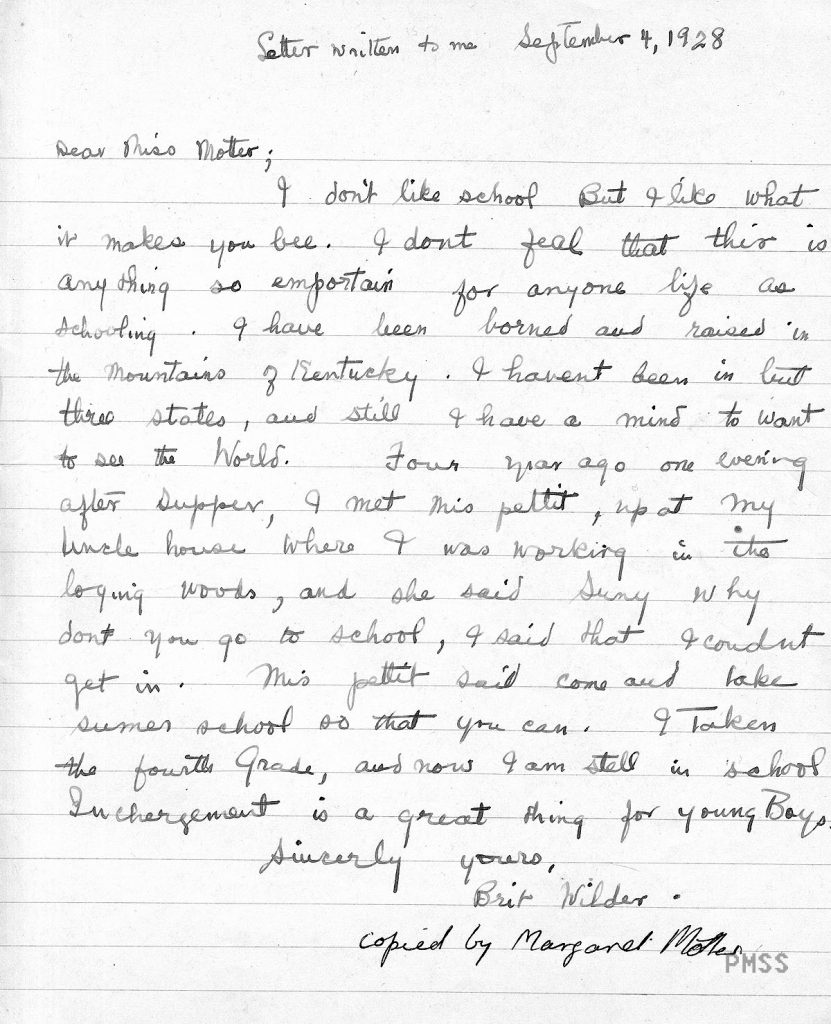 Letter written to me September 4, 1928
Dear Miss Motter;
I don't like school But I like what
it makes you bee. I dont feal that thir is
any thing so emportain for anyone life as
schooling. I have been borned and raised in
the Mountains of Kentucky. I havent been in but
three states, and still I have a mind to want
to see the World. Four year ago one evening
after supper, I met Mis pettit, up at my
Uncle house where I was working in the
loging woods, and she said Suny why
dont you go to school, I said that I coudnt
get in. Mis pettit said come and take
sumer school so that you can. I Taken
the fourth Grade, and now I am stell in school
Inchergement is a great thing for young Boys.
Sincerly yours,
Brit Wilder.
copied by Margaret Motter
PMSS